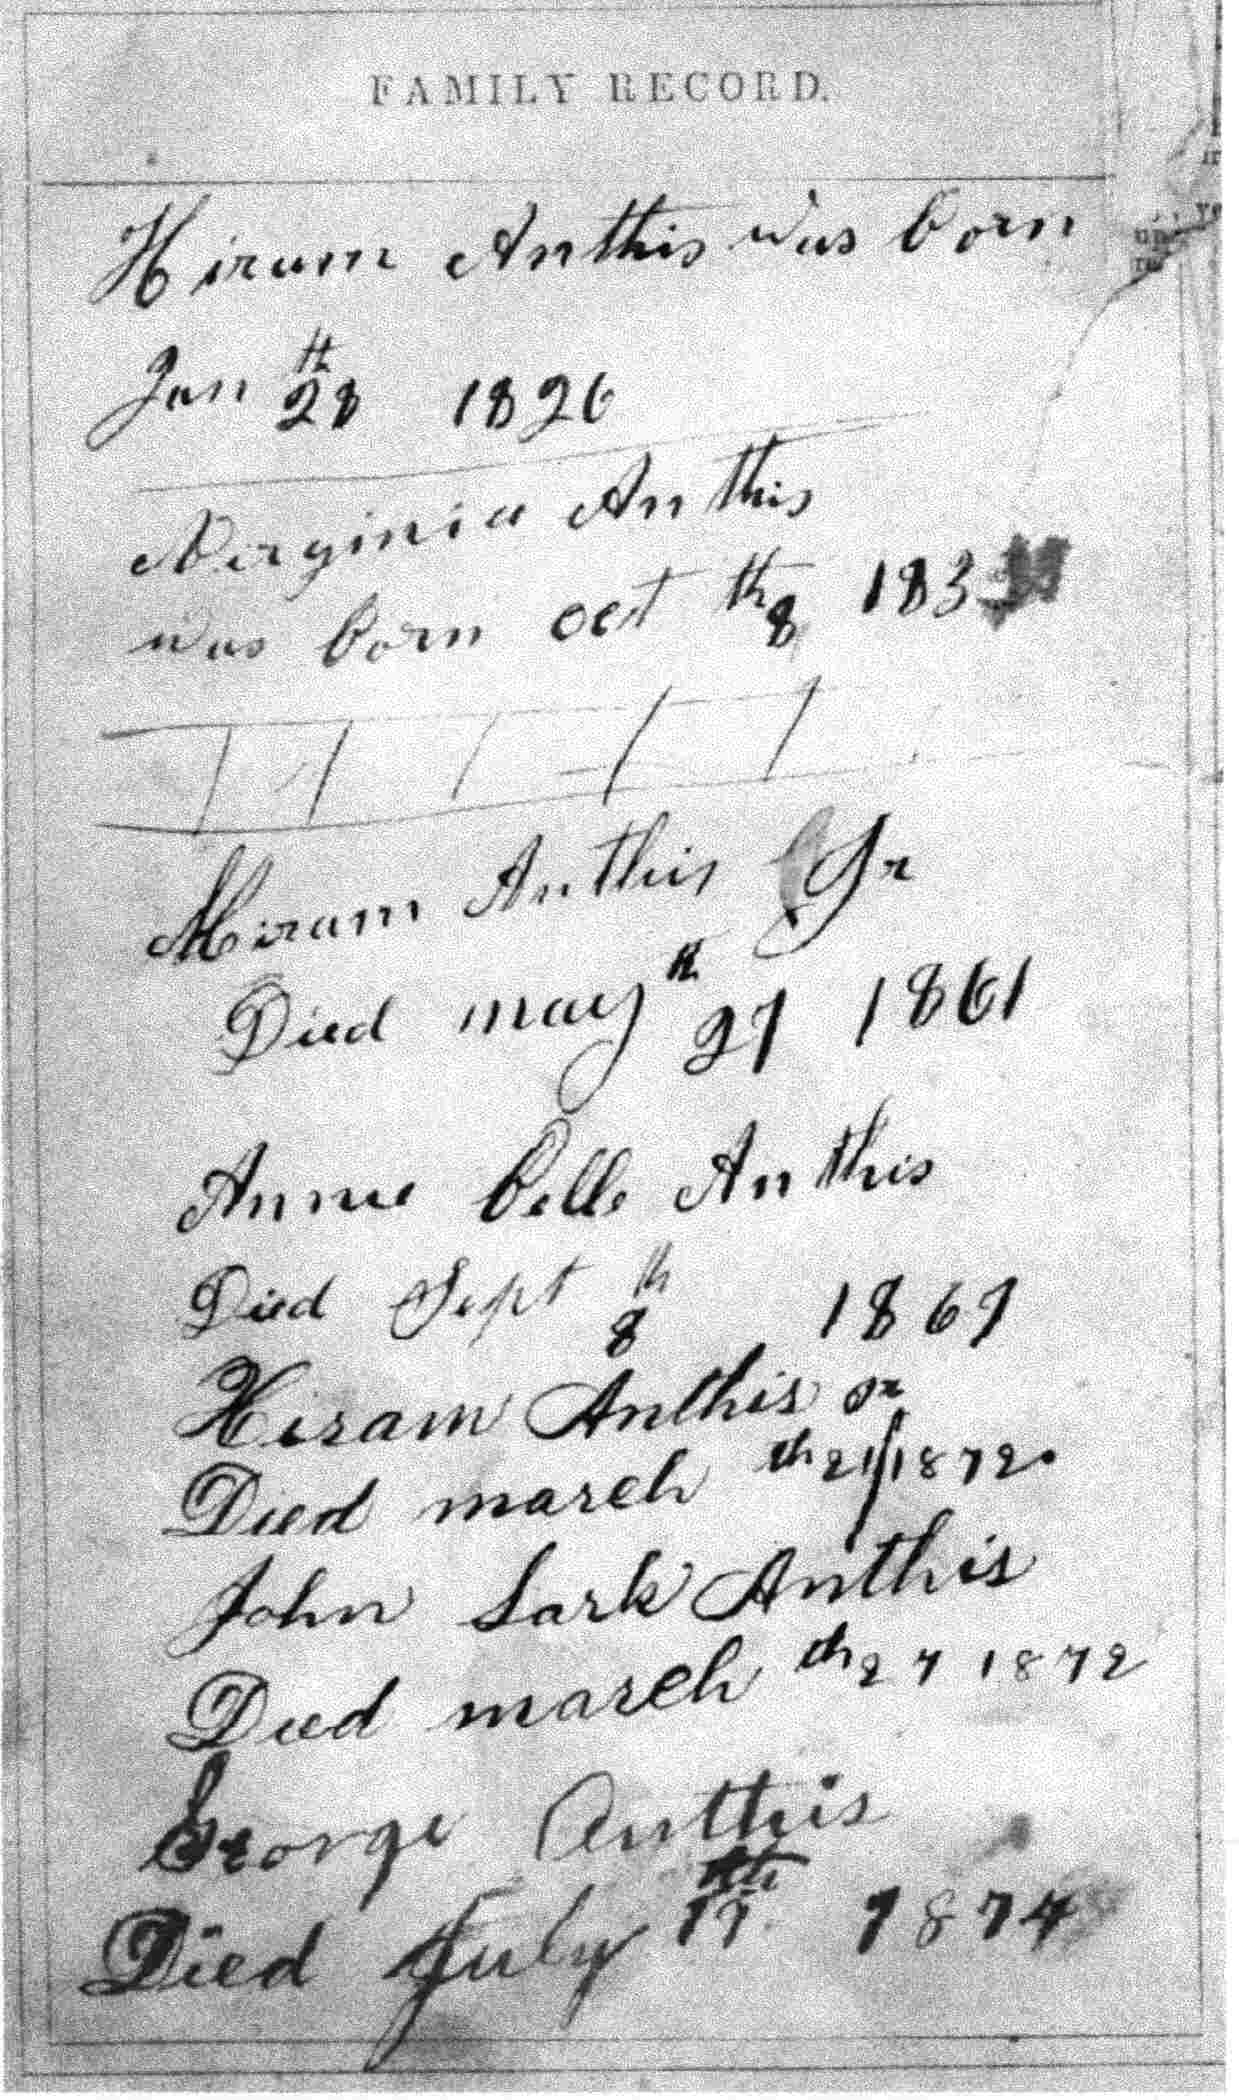 FAMILY RECORD.
Hiram Anthis was born
Jan 28th 1826
Virginia Anthis
was born oct th8 183
Hiram Anthis Jr
Died may th 27 1861
Annie Belle Anthis
Died Sept th 8 1867
Hiram Anthis sr
Died march th 21 1872.
John Lark Anthis
Died march th 27 1872
George Anthis
Died July 17th 1874